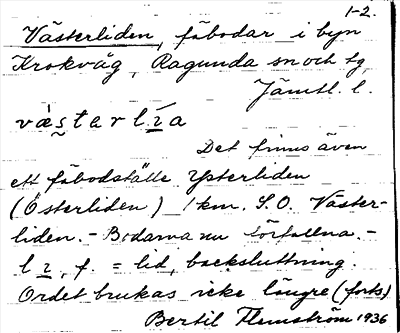 1-2.
Västerliden, fäbodar i byn
Krokvåg, Ragunda sn och tg
Jämtl. l.
Det finns även
ett fäbodställe Ysterliden
(Österliden) 1 km. S.O. Väster-
liden. - Bodarna nu förfallna. -
f. = lid, backsluttning.
Ordet brukas icke längre (forts)
Bertil Flemström 1936